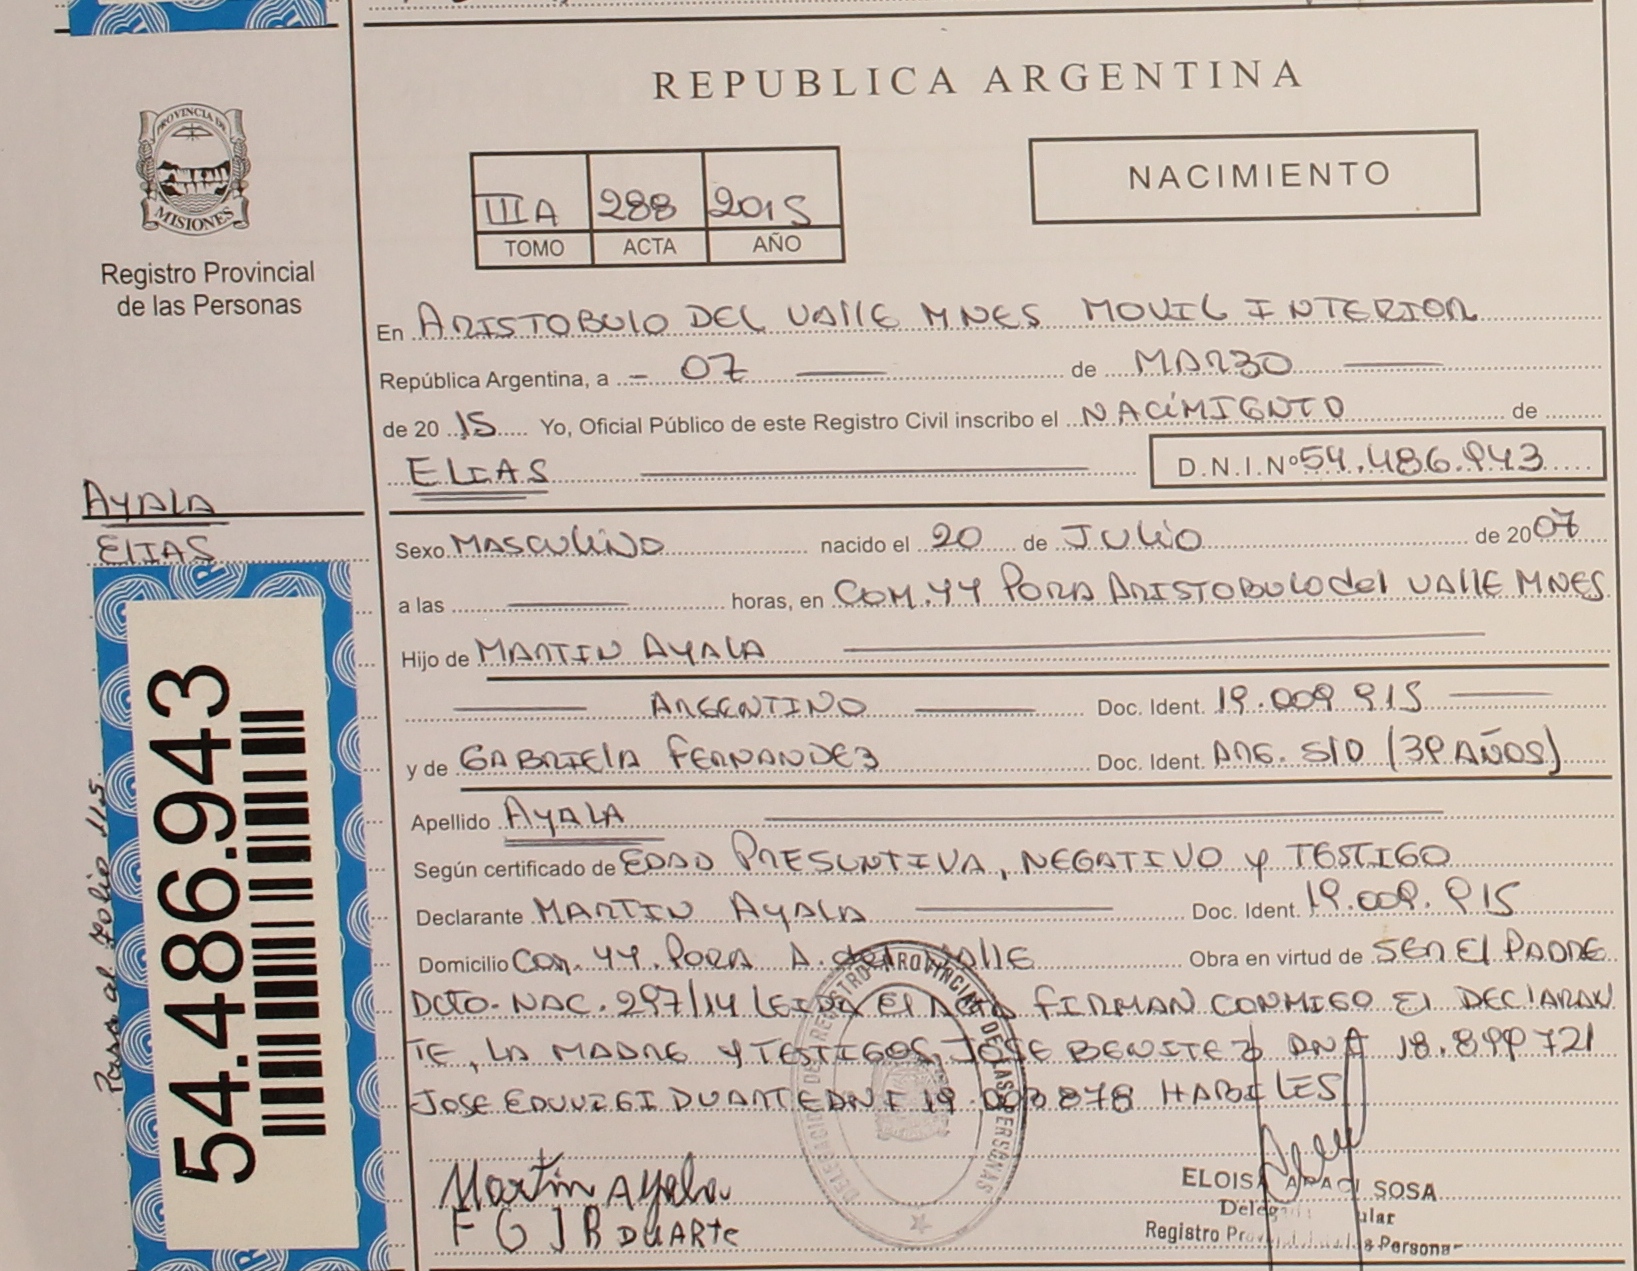 PROVINCIA DE
MISIONES
Registro Provincial
de las Personas
REPUBLICA ARGENTINA
NACIMIENTO
III A 288 2015
TOMO ACTA AÑO
En ARISTOBULO DEL VALLE MNES MOVIL INTERIOR
República Argentina, a - 07 de MARZO
de 20 15 Yo, Oficial Público de este Registro Civil inscribo el NACIMIENTO de
ELIAS D.N.I.Nº 54.486.943
AYALA
ELIAS
Sexo MASCULINO nacido el 20 de JULIO de 2007
a las horas, en COM. YY PORA ARISTOBULO del VALLE MNES
Hijo de MARTIN AYALA
ARGENTINO Doc. Ident. 19.009.915
y de GABRIELA FERNANDEZ Doc. Ident. ARG. S/D (39 AÑOS)
Apellido AYALA
Según certificado de EDAD PRESUNTIVA, NEGATIVO y TESTIGO
Declarante MARTIN AYALA Doc. Ident. 19.009.915
Domicilio COM. YY. PORA A. del VALLE Obra en virtud de SER El PADRE
DCTO. NAC. 297/14 LEIDA El ACTA FIRMAN CONMIGO El DECLARAN
TE, LA MADRE y TESTIGOS, JOSE BENITEZ DNI 18.899721
JOSE EDUVIGI DUARTE DNI 19.009878 HABILES
54.486.943
Pasa al folio 115
Martin Ayala
F G J B DUARTe
DELEGACION DEL REGISTRO PROVINCIAL DE LAS PERSONAS
ELOISA ARACI SOSA
Registro Provincial de las Personas